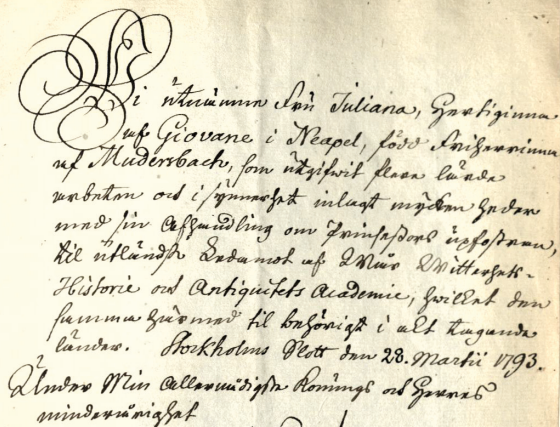 Wi utnämne Fru Juliana, Hertiginna
af Giovane i Neapel, född Friherrinna
af Mudersbach, som utgifwit flere lärde
arbeten och i synnerhet inlagt mycken heder
med sin Afhandling om Prinsessors upfostran,
til utländsk Ledamot af Wår Witterhets-
Historie och Antiquitets Academie, hwilket den
samma härmed til behörigt i akt tagande
länder. Stockholms Slott den 28. Martii 1793.
Under Min Allernådigste Konungs och Herres
minderårighet